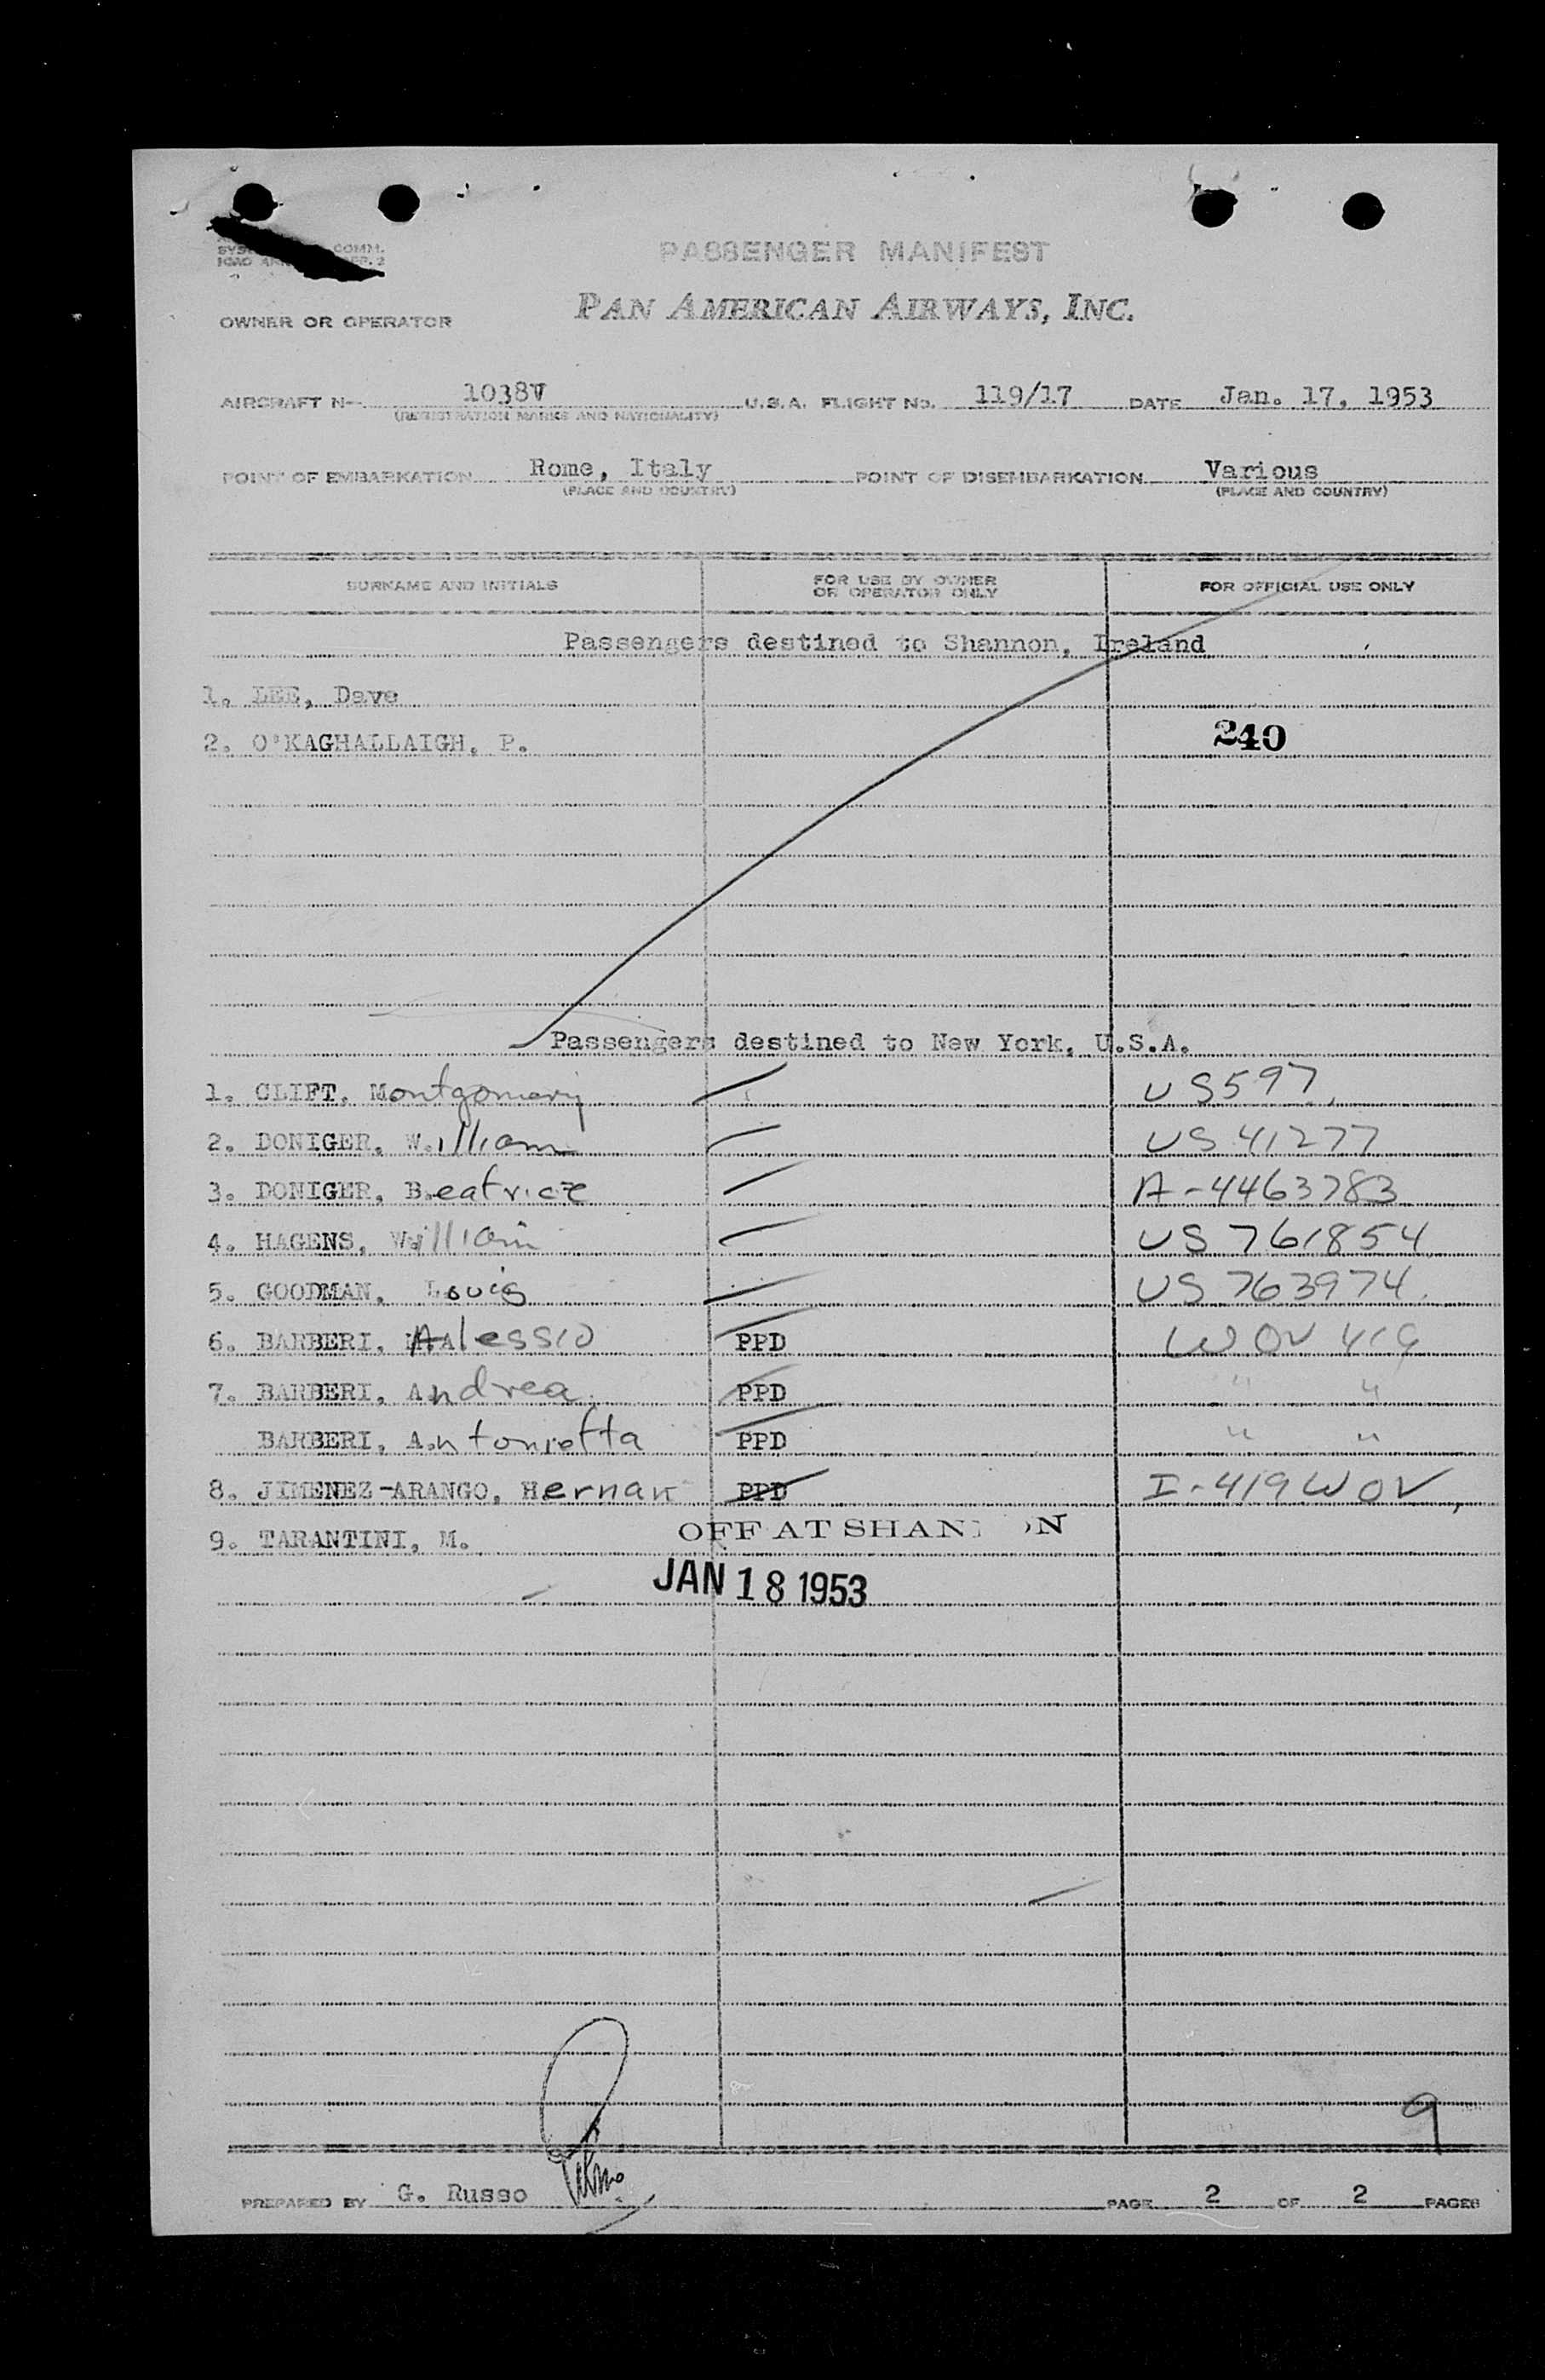 COMM.
PASSENGER MANIFEST
PAN AMERICAN AIRWAYS, INC.
OWNER OR OPERATOR
AIRCRAFT N- 1038V U.S.A. FLIGHT NO. 119/17 DATE Jan. 17, 1953
(REGISTRATION MARKS AND NATIONALITY)
POINT OF EMBARKATION Rome, Italy POINT OF DISEMBARKATION Various
(PLACE AND COUNTRY) (PLACE AND COUNTRY)
SURNAME AND INITIALS FOR USE BY OWNER OR OPERATOR ONLY FOR OFFICIAL USE ONLY
Passengers destined to Shannon, Ireland
1. LEE, Dave
2. O'KAGHALLAIGH, P. 240
Passengers destined to New York, U.S.A.
1. CLIFT, Montgomery US597
2. DONIGER, William US 41277
3. DONIGER, Beatrice A-4463783
4. HAGENS, William US 761854
5. GOODMAN, Louis US 763974
6. BARBERI, Alessio PPD WOV 419
7. BARBERI, Andrea PPD " "
BARBERI, Antonietta PPD " "
8. JIMENEZ-ARANGO, Hernan PPD I-419 WOV
9. TARANTINI, M. OFF AT SHAN ON
JAN 18 1953
9
PREPARED BY G. Russo PAGE 2 OF 2 PAGES